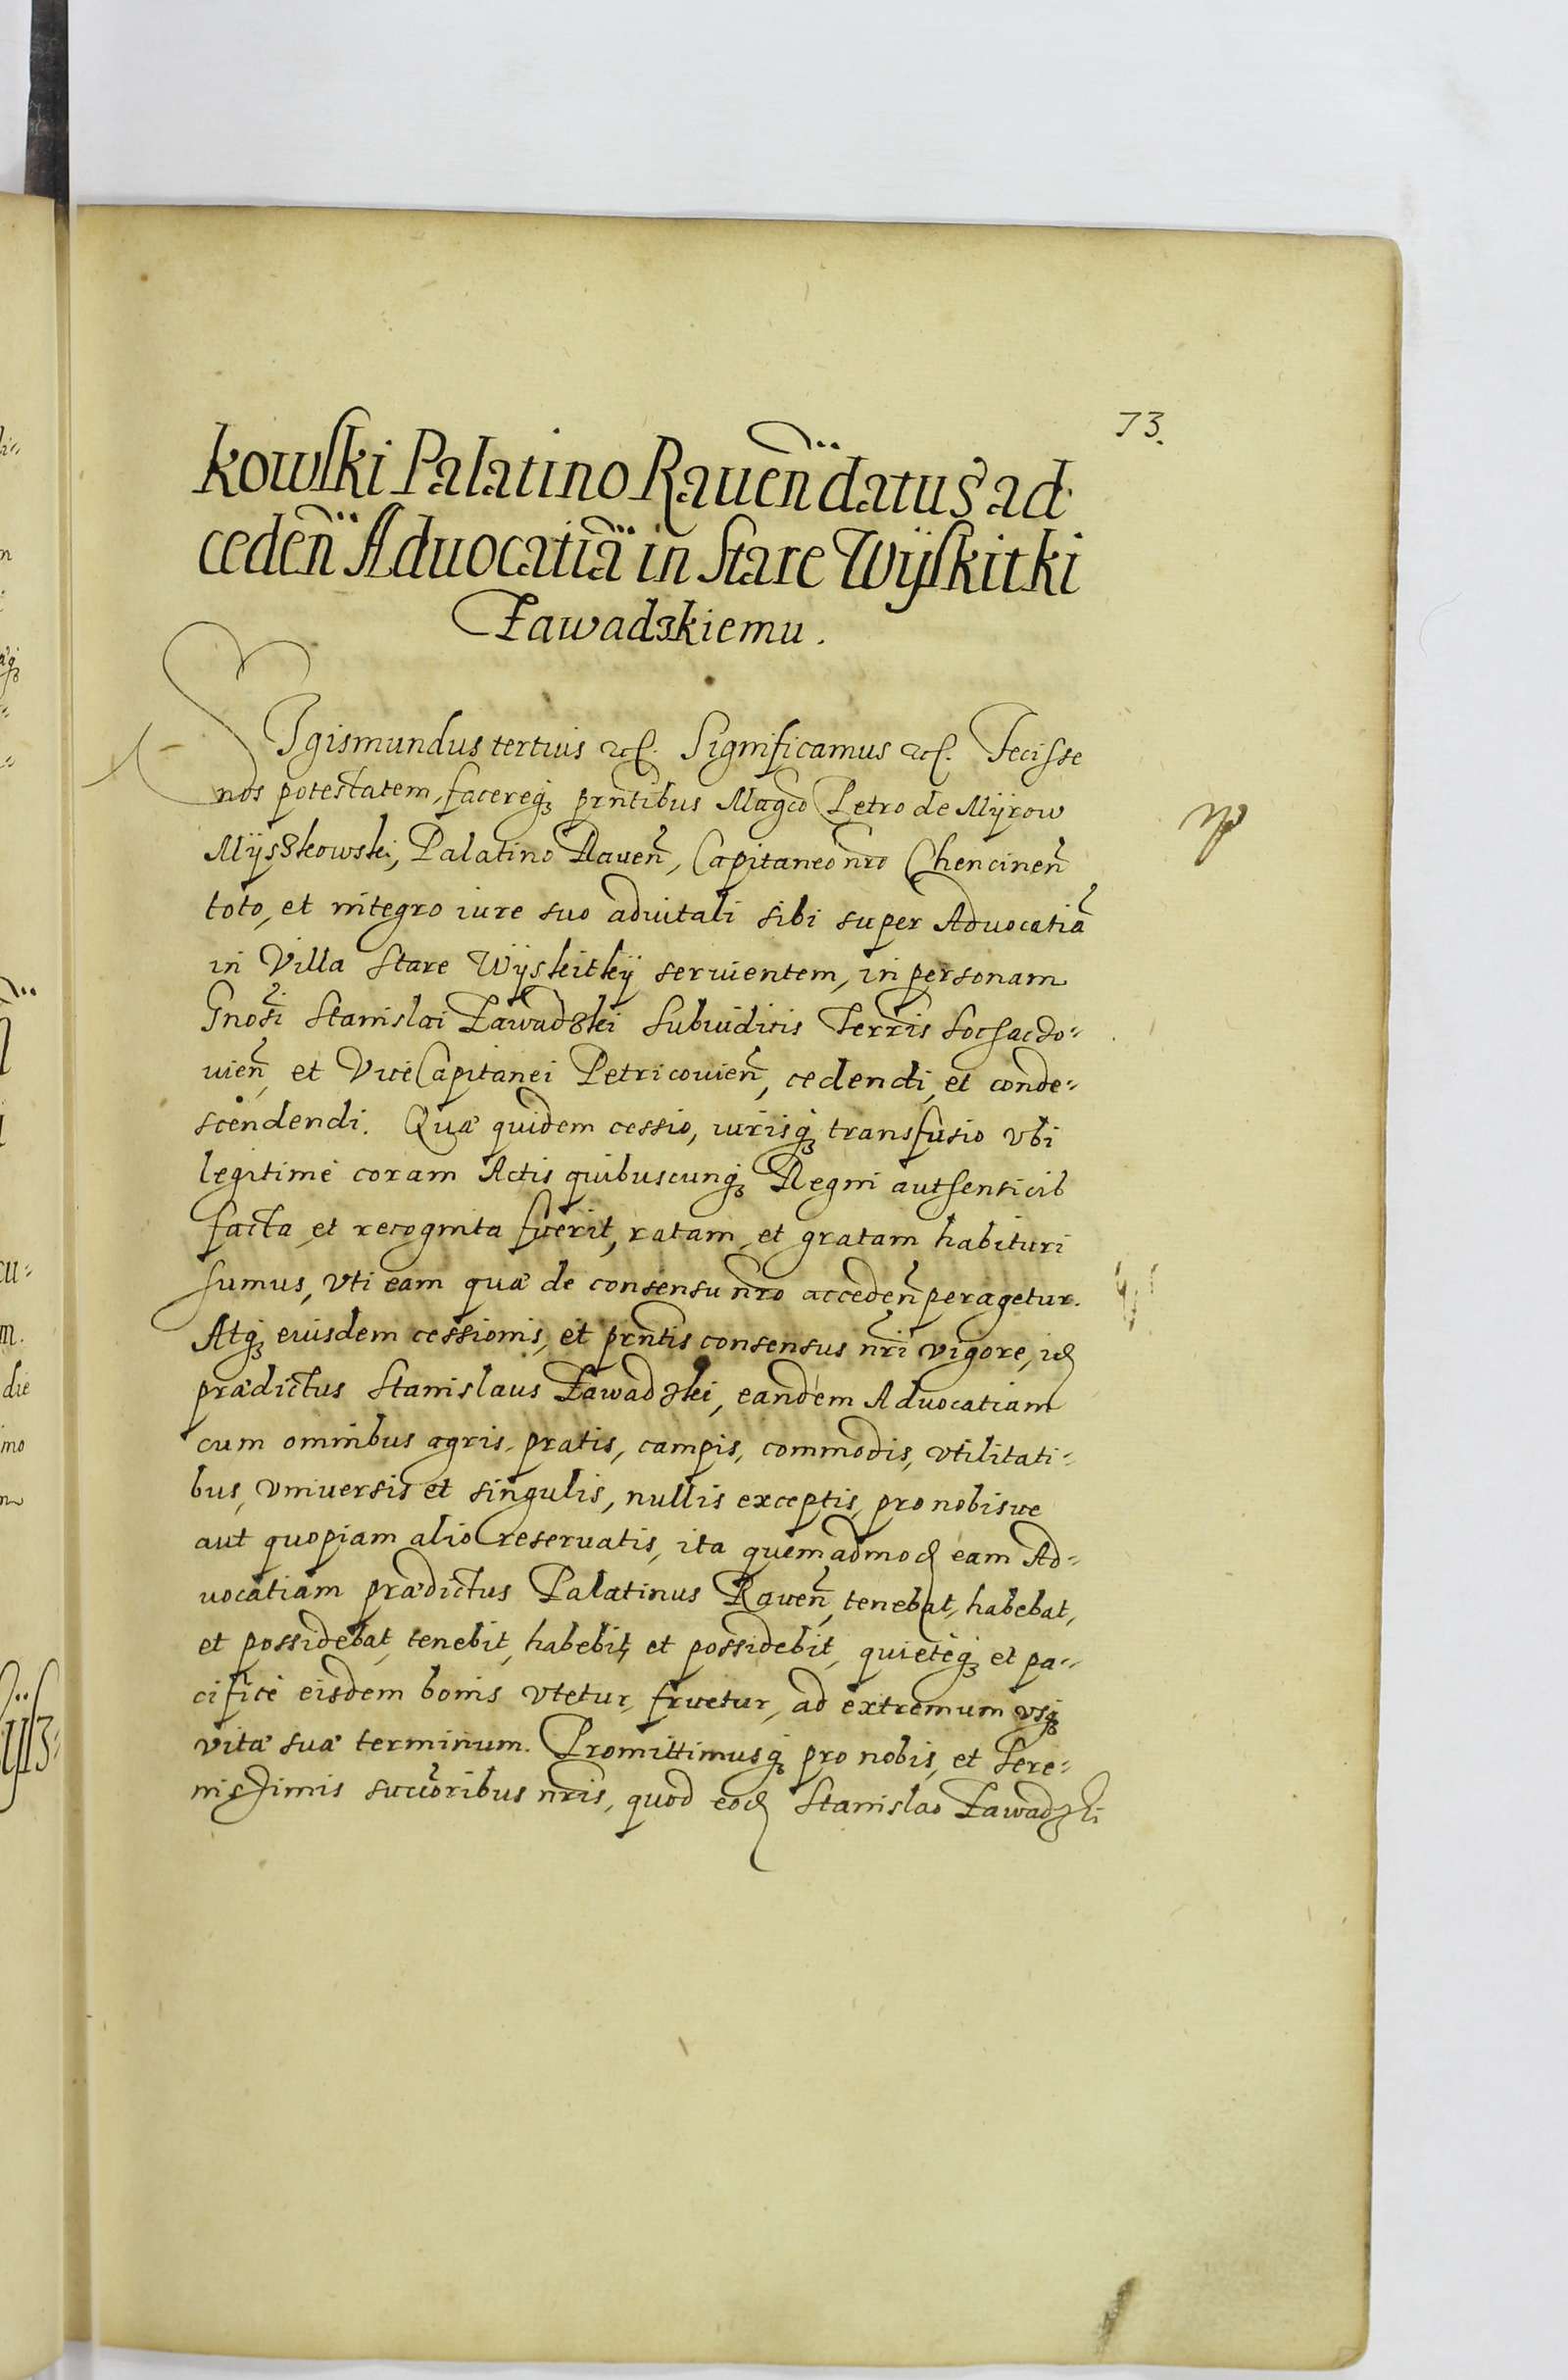 73.
kowski Palatino Raueñ datus ad
cedeñ Aduocatiã in Stare Wÿskitki
Zawadzkiemu.
Sigismundus tertius etc. Significamus etc. Fecisse
nos potestatem, facereq₃ prñtibus Magco Petro de Mÿrow
Mÿszkowski, Palatino Raueñ, Capitaneo nro Chencineñ
toto, et integro iure suo aduitali sibi super Aduocatiã
in Villa Stare Wÿskitkÿ seruientem, in personam
Gnosi Stanislai Zawadzki Subiudicis Terris Sochaczo=
uieñ, et ViceCapitanei Petricouieñ, cedendi, et conde=
scendendi. Quæ quidem cessio, iurisq₃ transfusio vbi
legitimè coram Actis quibuscunq₃ Regni authenticib
facta, et recognita fuerit, ratam, et gratam habituri
sumus, vti eam quæ de consensu nro accedeñ peragetur.
Atq₃ eiusdem cessionis, et prñtis consensus nri vigore, idem
prædictus Stanislaus Zawadzki, eandem Aduocatiam
cum omnibus agris, pratis, campis, commodis, vtilitati=
bus, vniuersis et singulis, nullis exceptis, pro nobisue
aut quopiam alio reseruatis, ita quemadmod eam Ad=
uocatiam prædictus Palatinus Raueñ, tenebat, habebat,
et possidebat, tenebit, habebit, et possidebit, quietèq₃ et pa=
cificè eisdem bonis vtetur, fruetur, ad extremum vsq₃
vitæ suæ terminum. Promittimusq₃ pro nobis, et Sere=
nissimis succoribus nris, quod eod Stanislao Zawadzki